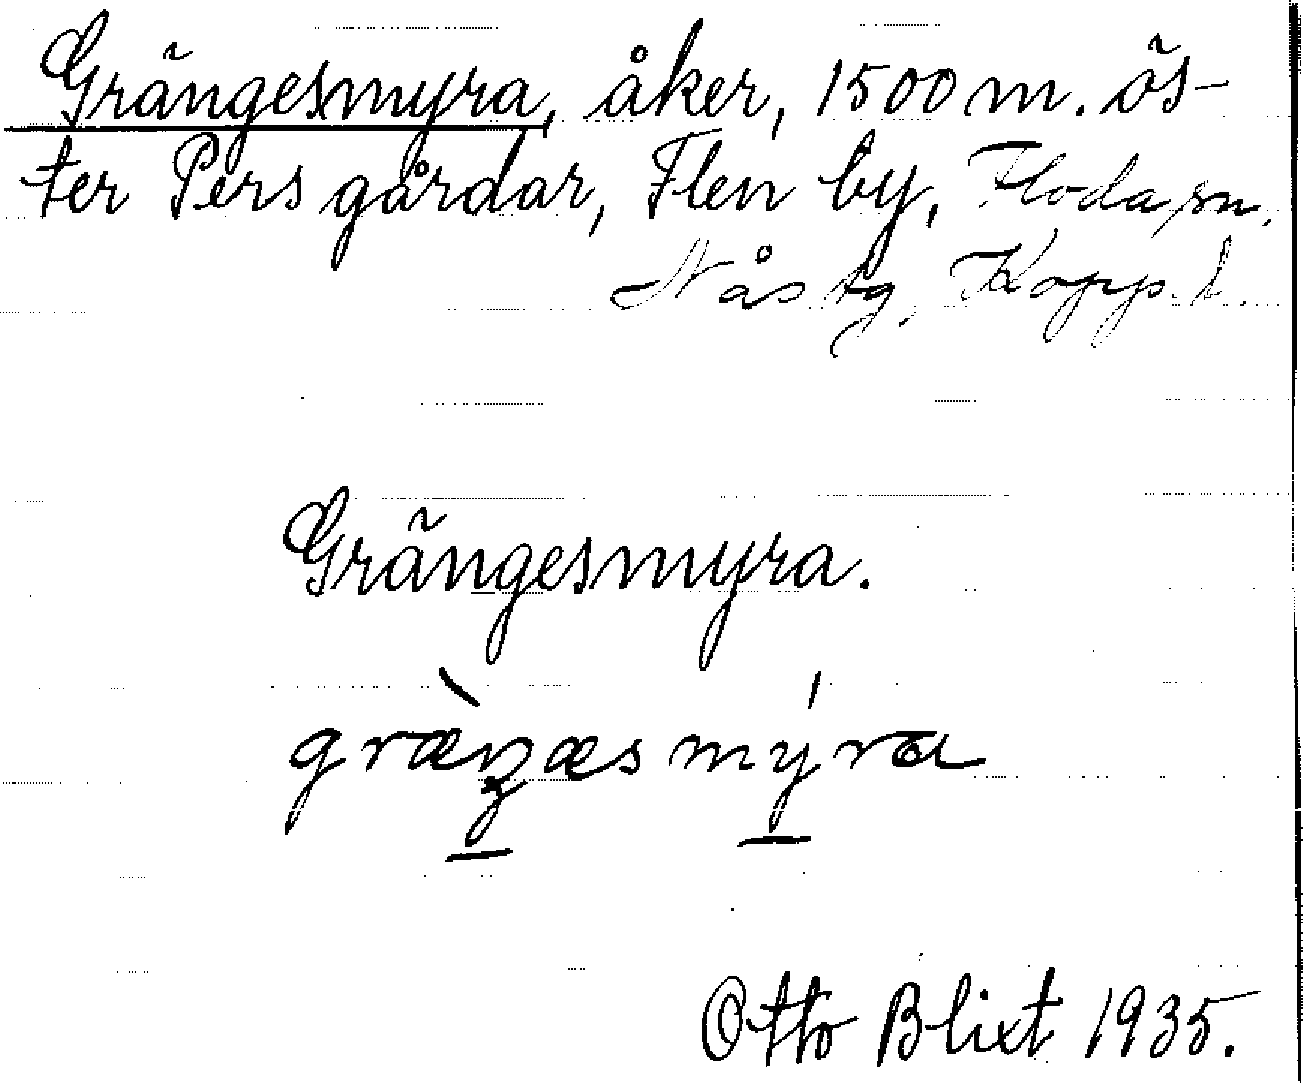 Grängesmyra, åker, 1500 m. ös-
ter Pers gårdar, Flen by, Floda sn,
Nås tg, Kopp. l.
Grängesmyra.
Otto Blixt 1935.